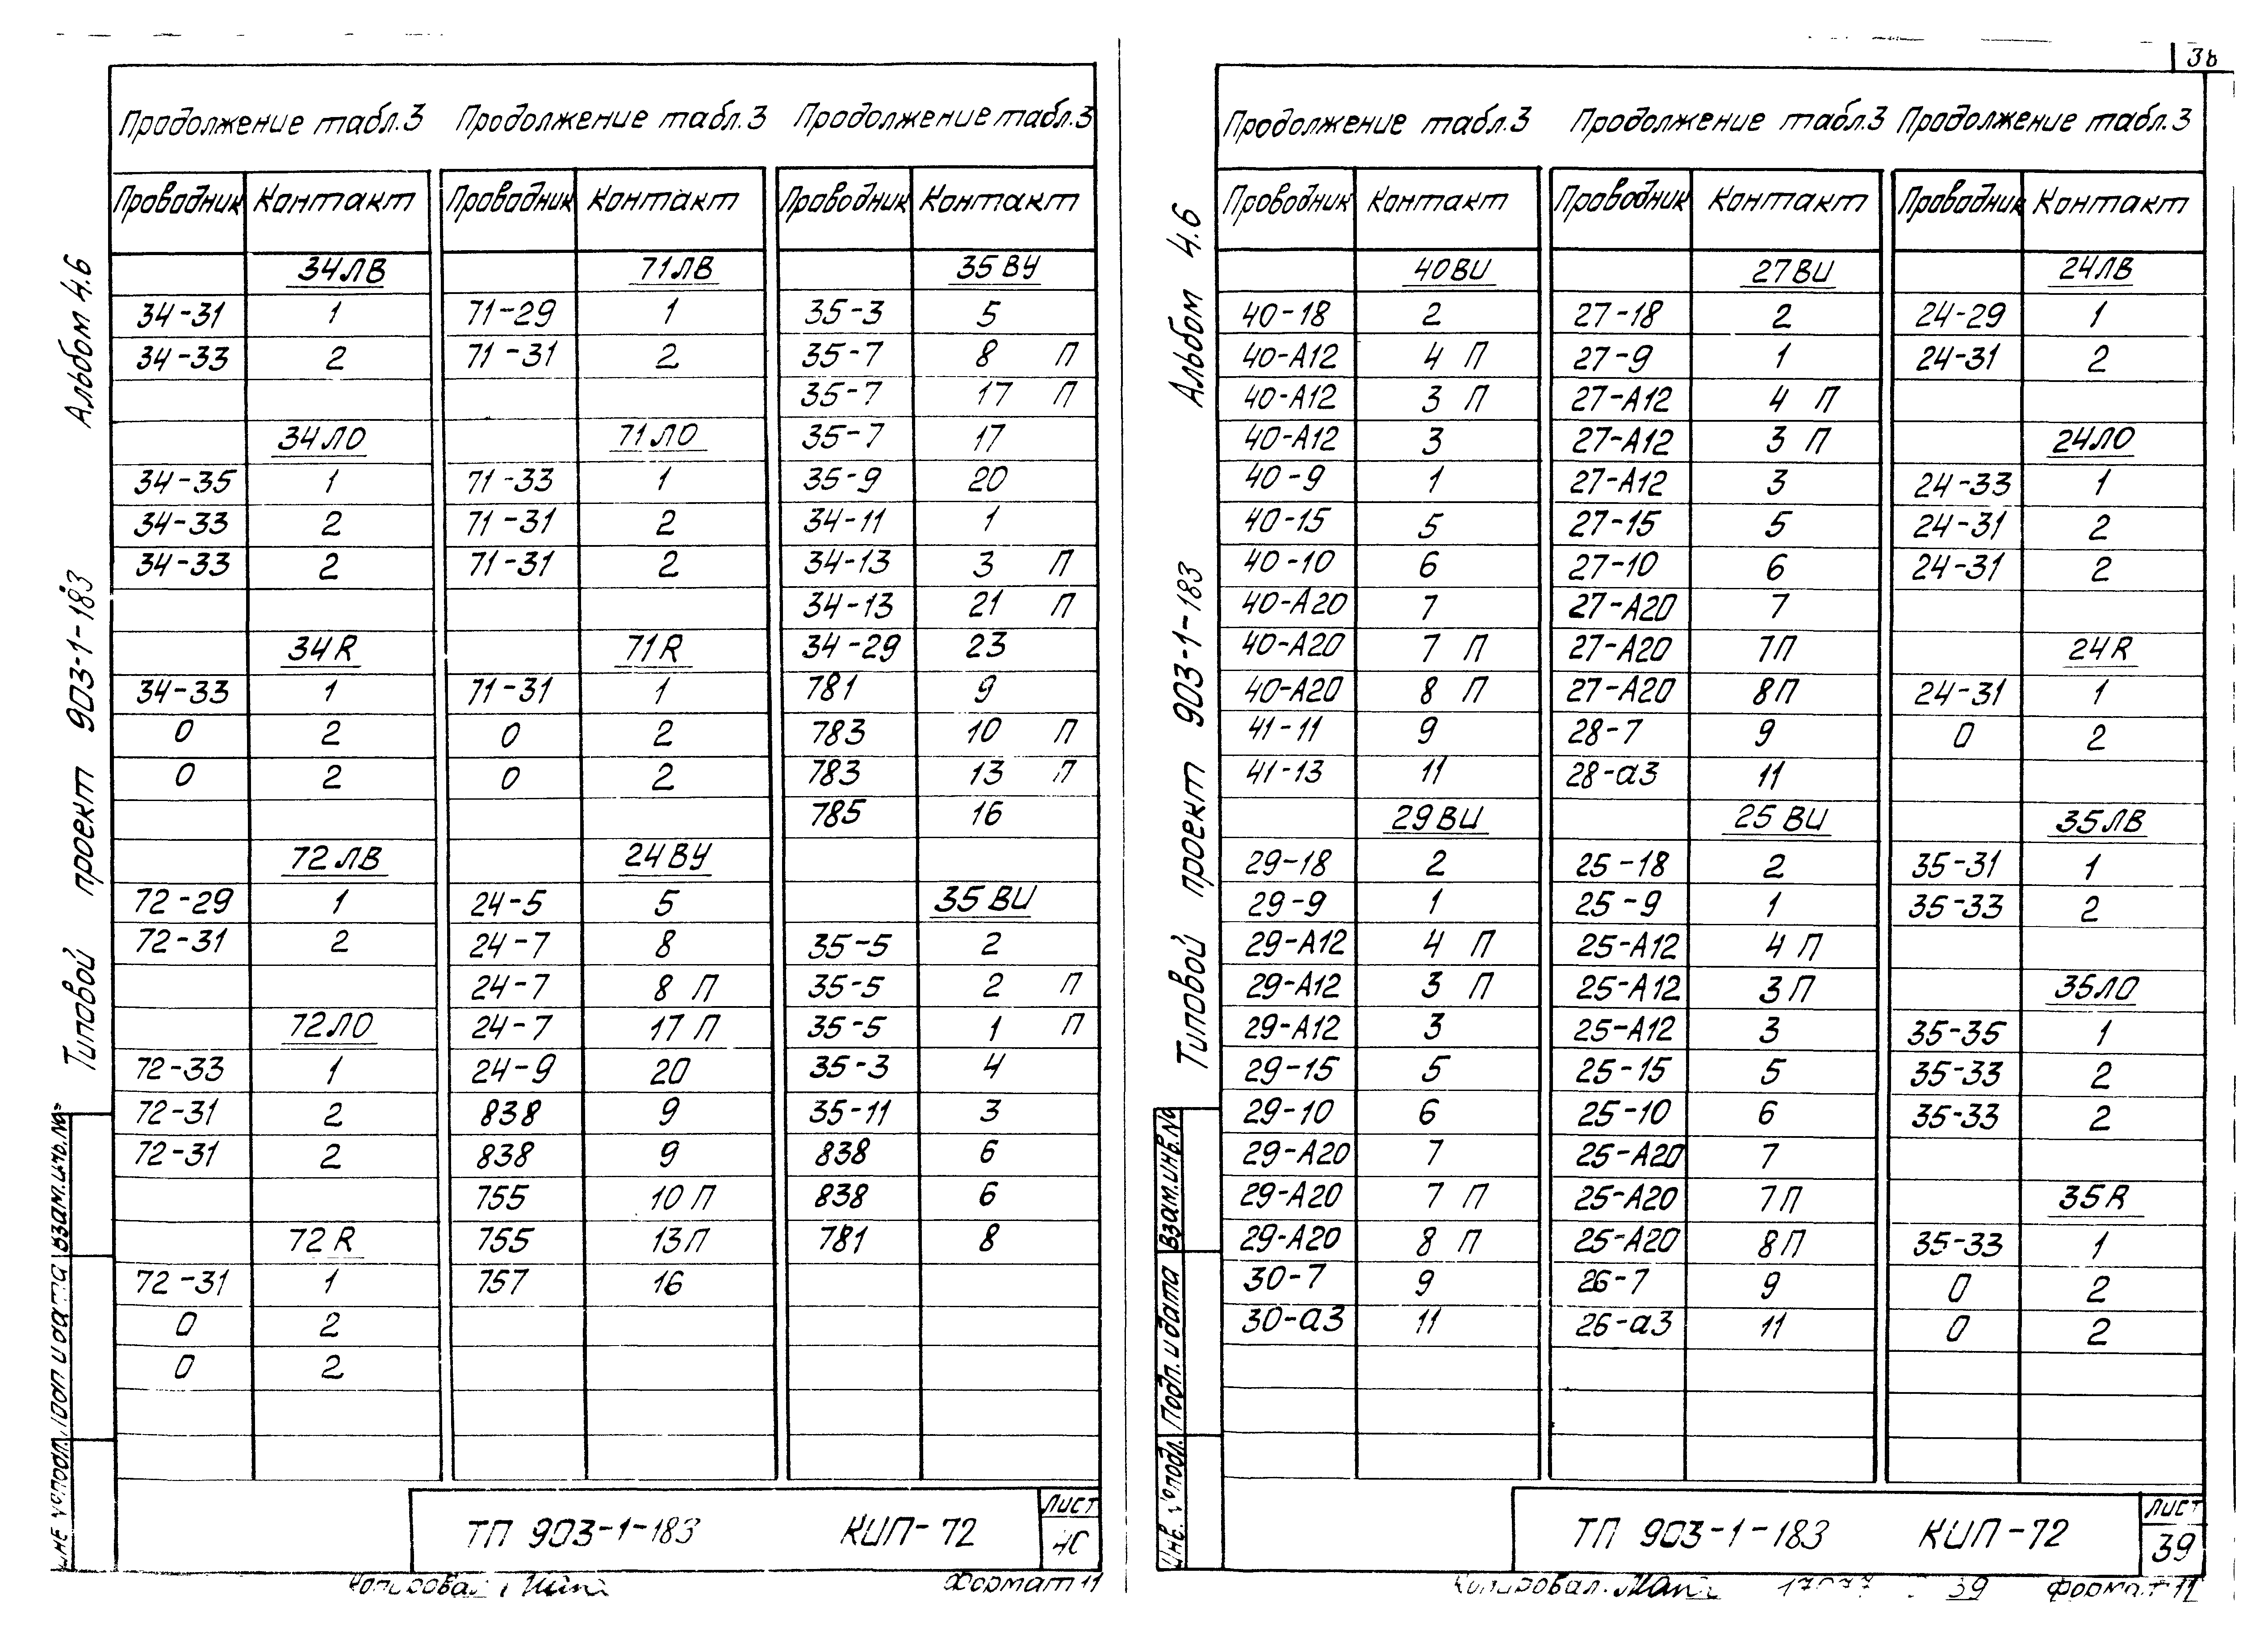 38
Альбом 4.6
Типовой проект 903-1-183
Продолжение табл.3 Продолжение табл.3 Продолжение табл.3
Проводник Контакт Проводник Контакт Проводник Контакт
34ЛВ 71ЛВ 35ВУ
34-31 1 71-29 1 35-3 5
34-33 2 71-31 2 35-7 8 П
35-7 17 П
34ЛО 71ЛО 35-7 17
34-35 1 71-33 1 35-9 20
34-33 2 71-31 2 34-11 1
34-33 2 71-31 2 34-13 3 П
34-13 21 П
34R 71R 34-29 23
34-33 1 71-31 1 781 9
0 2 0 2 783 10 П
0 2 0 2 783 13 П
785 16
72ЛВ 24ВУ
72-29 1 24-5 5 35ВИ
72-31 2 24-7 8 35-5 2
24-7 8 П 35-5 2 П
72ЛО 24-7 17 П 35-5 1 П
72-33 1 24-9 20 35-3 4
72-31 2 838 9 35-11 3
72-31 2 838 9 838 6
755 10 П 838 6
72R 755 13П 781 8
72-31 1 757 16
0 2
0 2
ТП 903-1-183 КИП-72
Лист
Копировал
Формат 11
Альбом 4.6
Типовой проект 903-1-183
Взам.инв.№
Подп. и дата
Инв. № подл.
Продолжение табл.3 Продолжение табл.3 Продолжение табл.3
Проводник Контакт Проводник Контакт Проводник Контакт
40ВИ 27ВИ 24ЛВ
40-18 2 27-18 2 24-29 1
40-А12 4 П 27-9 1 24-31 2
40-А12 3 П 27-А12 4 П
40-А12 3 27-А12 3 П 24ЛО
40-9 1 27-А12 3 24-33 1
40-15 5 27-15 5 24-31 2
40-10 6 27-10 6 24-31 2
40-А20 7 27-А20 7
40-А20 7 П 27-А20 7П 24R
40-А20 8 П 27-А20 8П 24-31 1
41-11 9 28-7 9 0 2
41-13 11 28-а3 11
29ВИ 25ВИ 35ЛВ
29-18 2 25-18 2 35-31 1
29-9 1 25-9 1 35-33 2
29-А12 4 П 25-А12 4 П
29-А12 3 П 25-А12 3П 35ЛО
29-А12 3 25-А12 3 35-35 1
29-15 5 25-15 5 35-33 2
29-10 6 25-10 6 35-33 2
29-А20 7 25-А20 7
29-А20 7 П 25-А20 7П 35R
29-А20 8 П 25-А20 8П 35-33 1
30-7 9 26-7 9 0 2
30-а3 11 26-а3 11 0 2
ТП 903-1-183 КИП-72
Лист
39
Копировал.
39
Формат 11